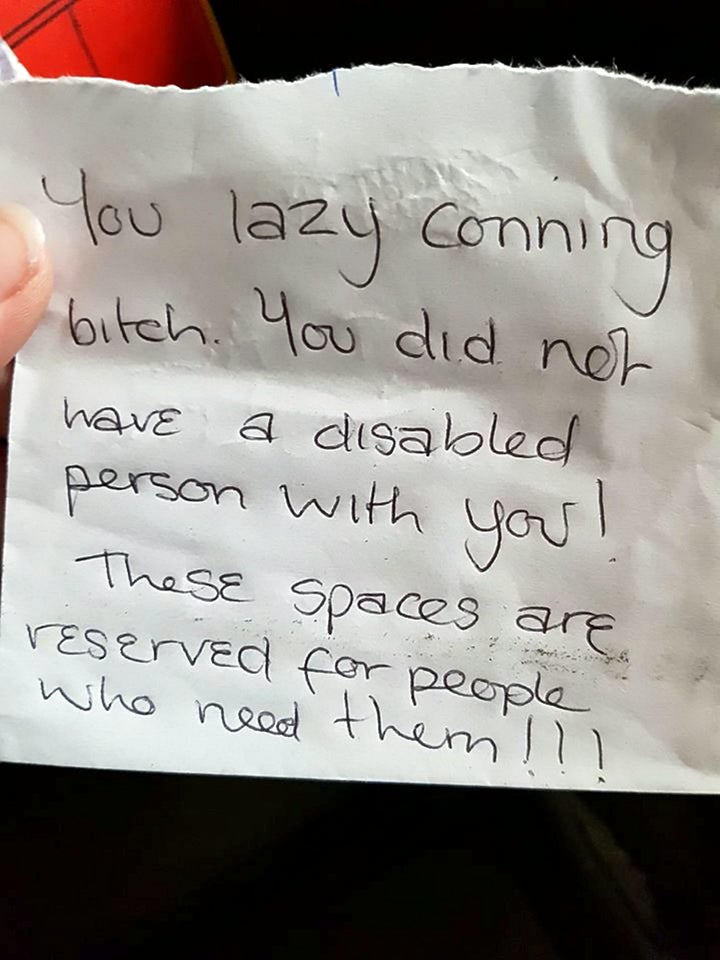 You lazy conning
bitch. You did not
have a disabled
person with you!
These spaces are
reserved for people
who need them!!!